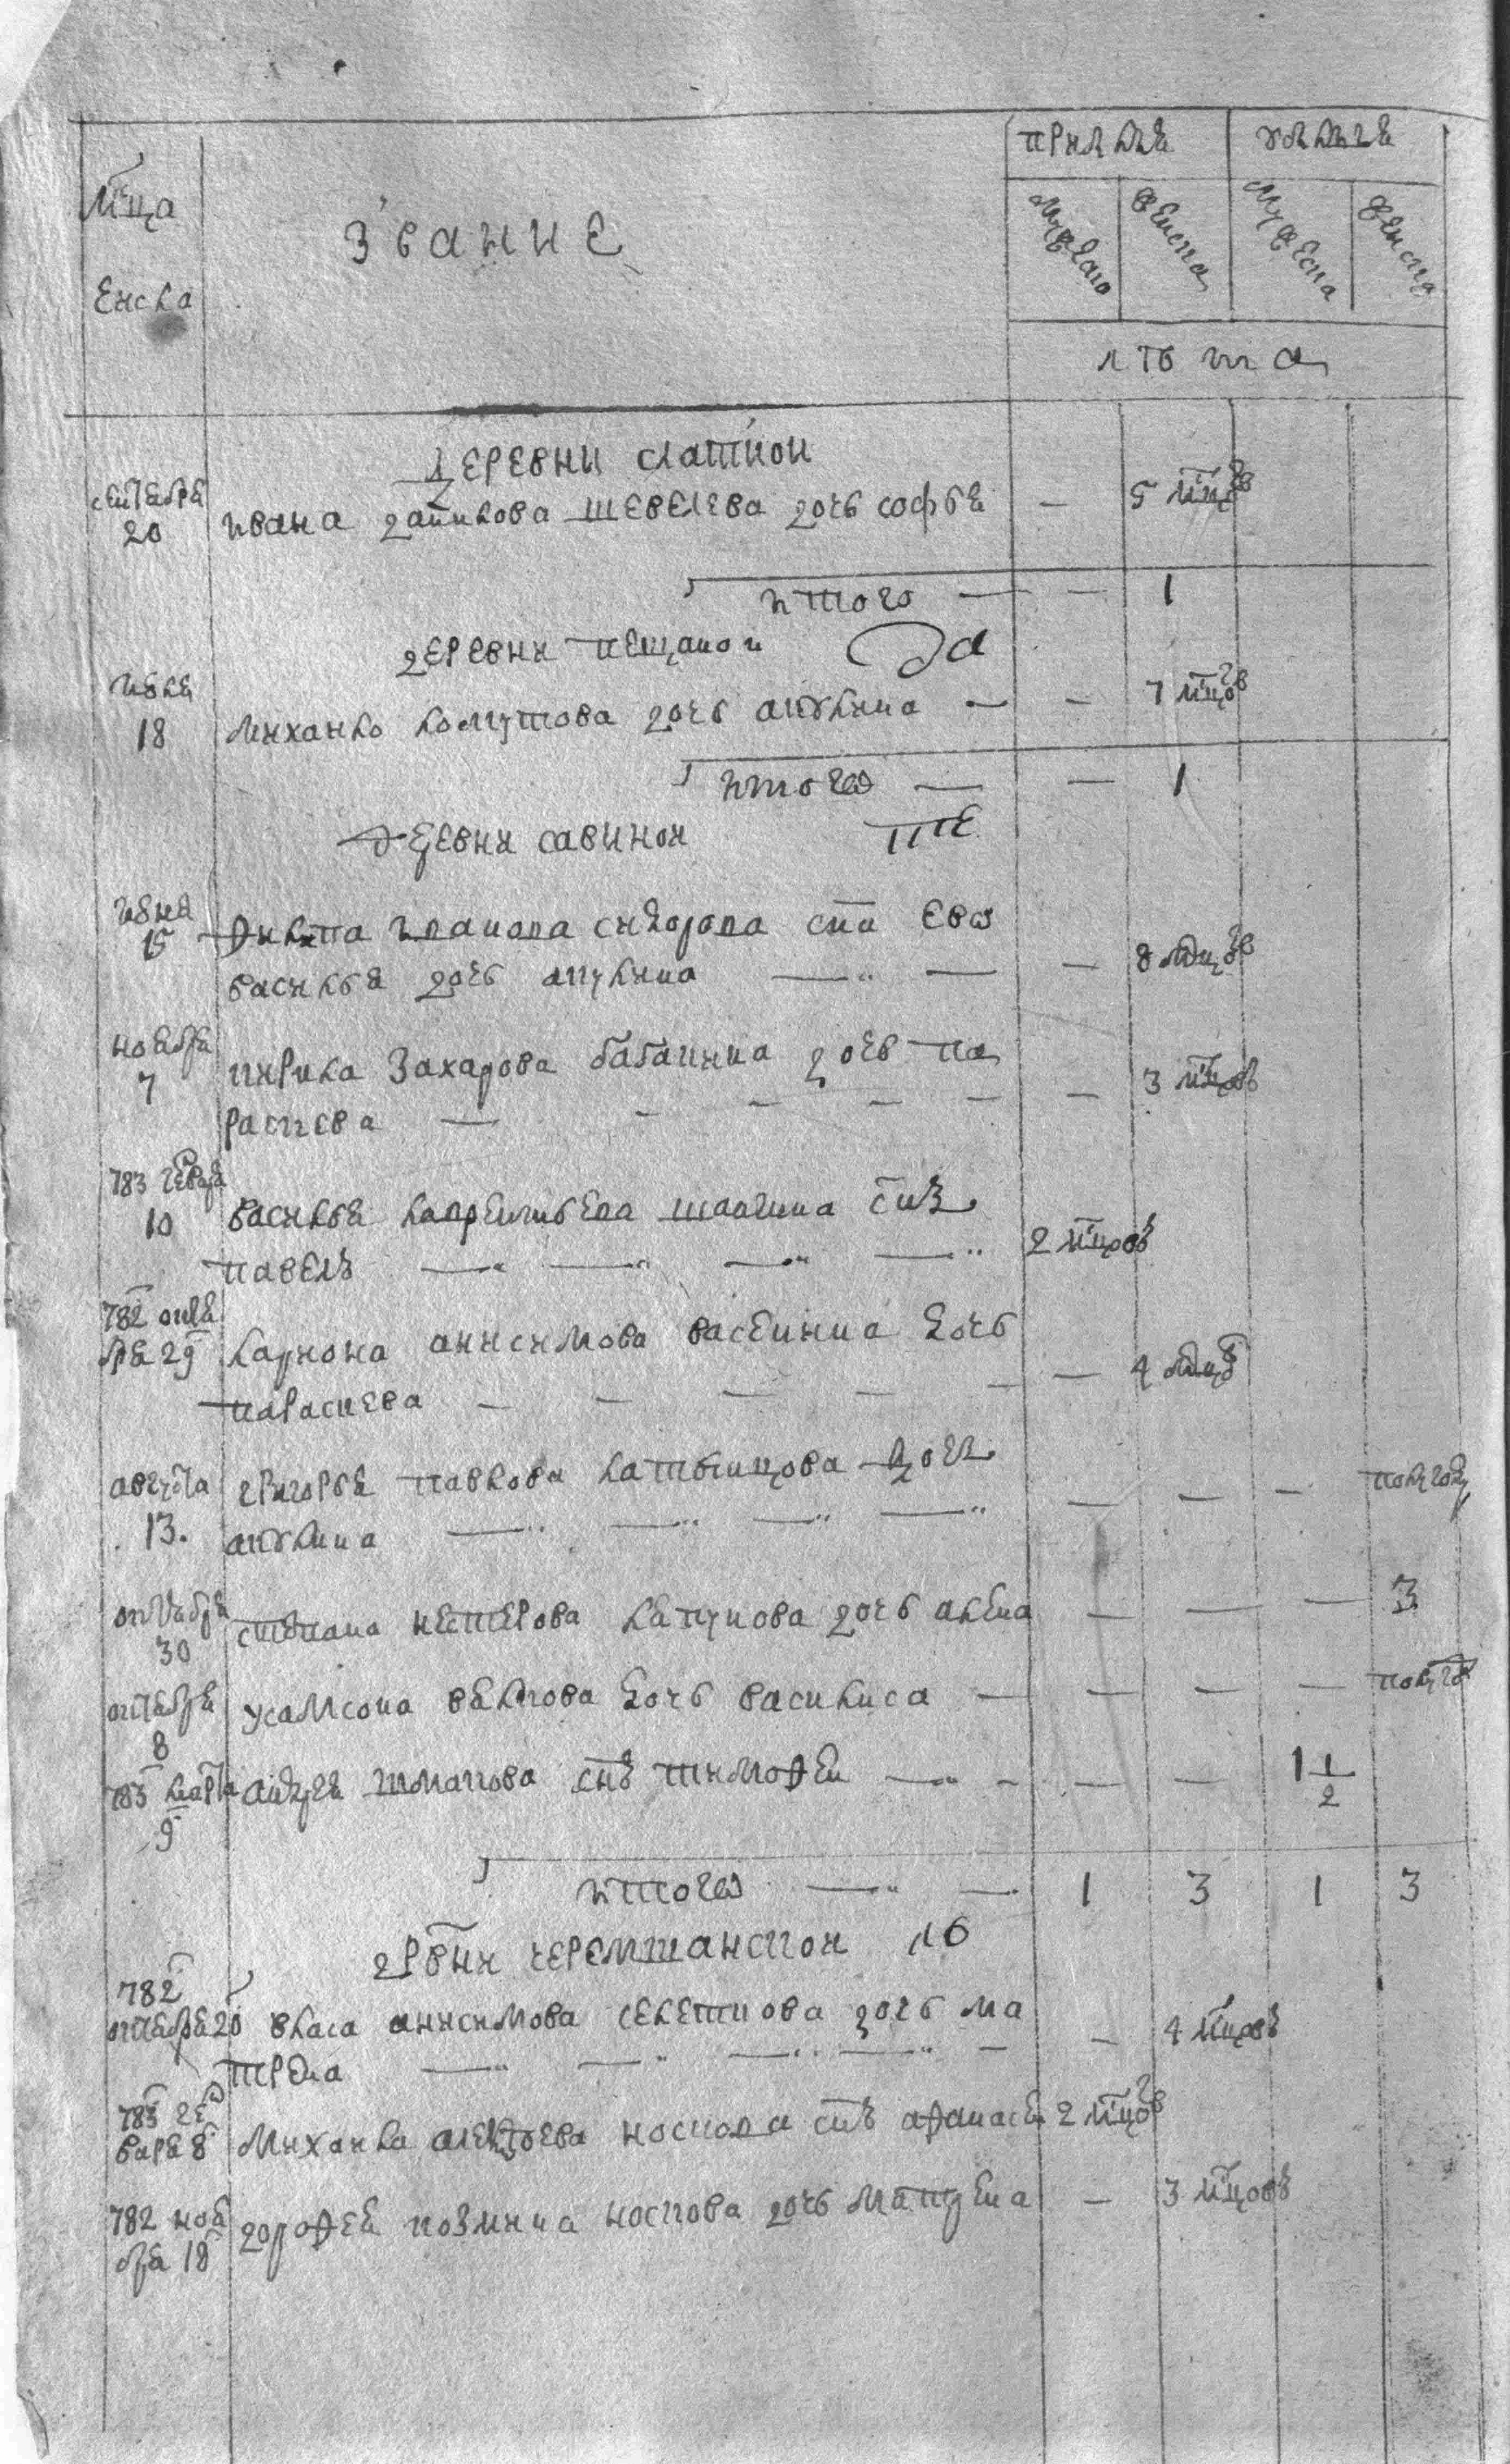 мц̃а
енска
звание
мужеско
женска
мужеска
женска
лѣта
деревни слаткои
сентября
20
ивана данилова шевелева дочь софья — 5 мц̃овъ
итого — — 1
деревни песчанои
июля
18
михаило хомутова дочь акулина — — 7 мц̃овъ
итого — — 1
деревни савинои
июня
15
никита иванова сидорова сн̃а ево
василья дочь акулина — — — 8 мц̃овъ
ноября
7
кирила захарова бабаикина дочь па
раскева — — — — — — 3 мц̃овъ
783 генваря
10
василья лаврентьева шапкина сн̃ъ
павелъ — — — — 2 мц̃овъ
782 октя
бря 29
лариона анисимова васеинина дочь
параскева — — — — — — 4 мц̃овъ
августа
13.
григорья павлова латынцова дочь
акулина — — — — — — — полугоду
октября
30
степана нестерова лапунова дочь алена — — — 3
октября
8
усамсона вялкова дочь василиса — — — — полугод
783 марта
9
андрея токмакова сн̃ъ тимофеи — — — — 1 1/2
итого — — 1 3 1 3
дрв̃ни черемшанскои 16
782
октября 20
власа анисимова селеткова дочь ма
трена — — — — — — 4 мц̃овъ
783 ген
варя 8
михаила алексеева носкова сн̃ъ афанасеи 2 мц̃овъ
782 ноя
бря 18
дорофея козмина носкова дочь матрена — 3 мц̃овъ